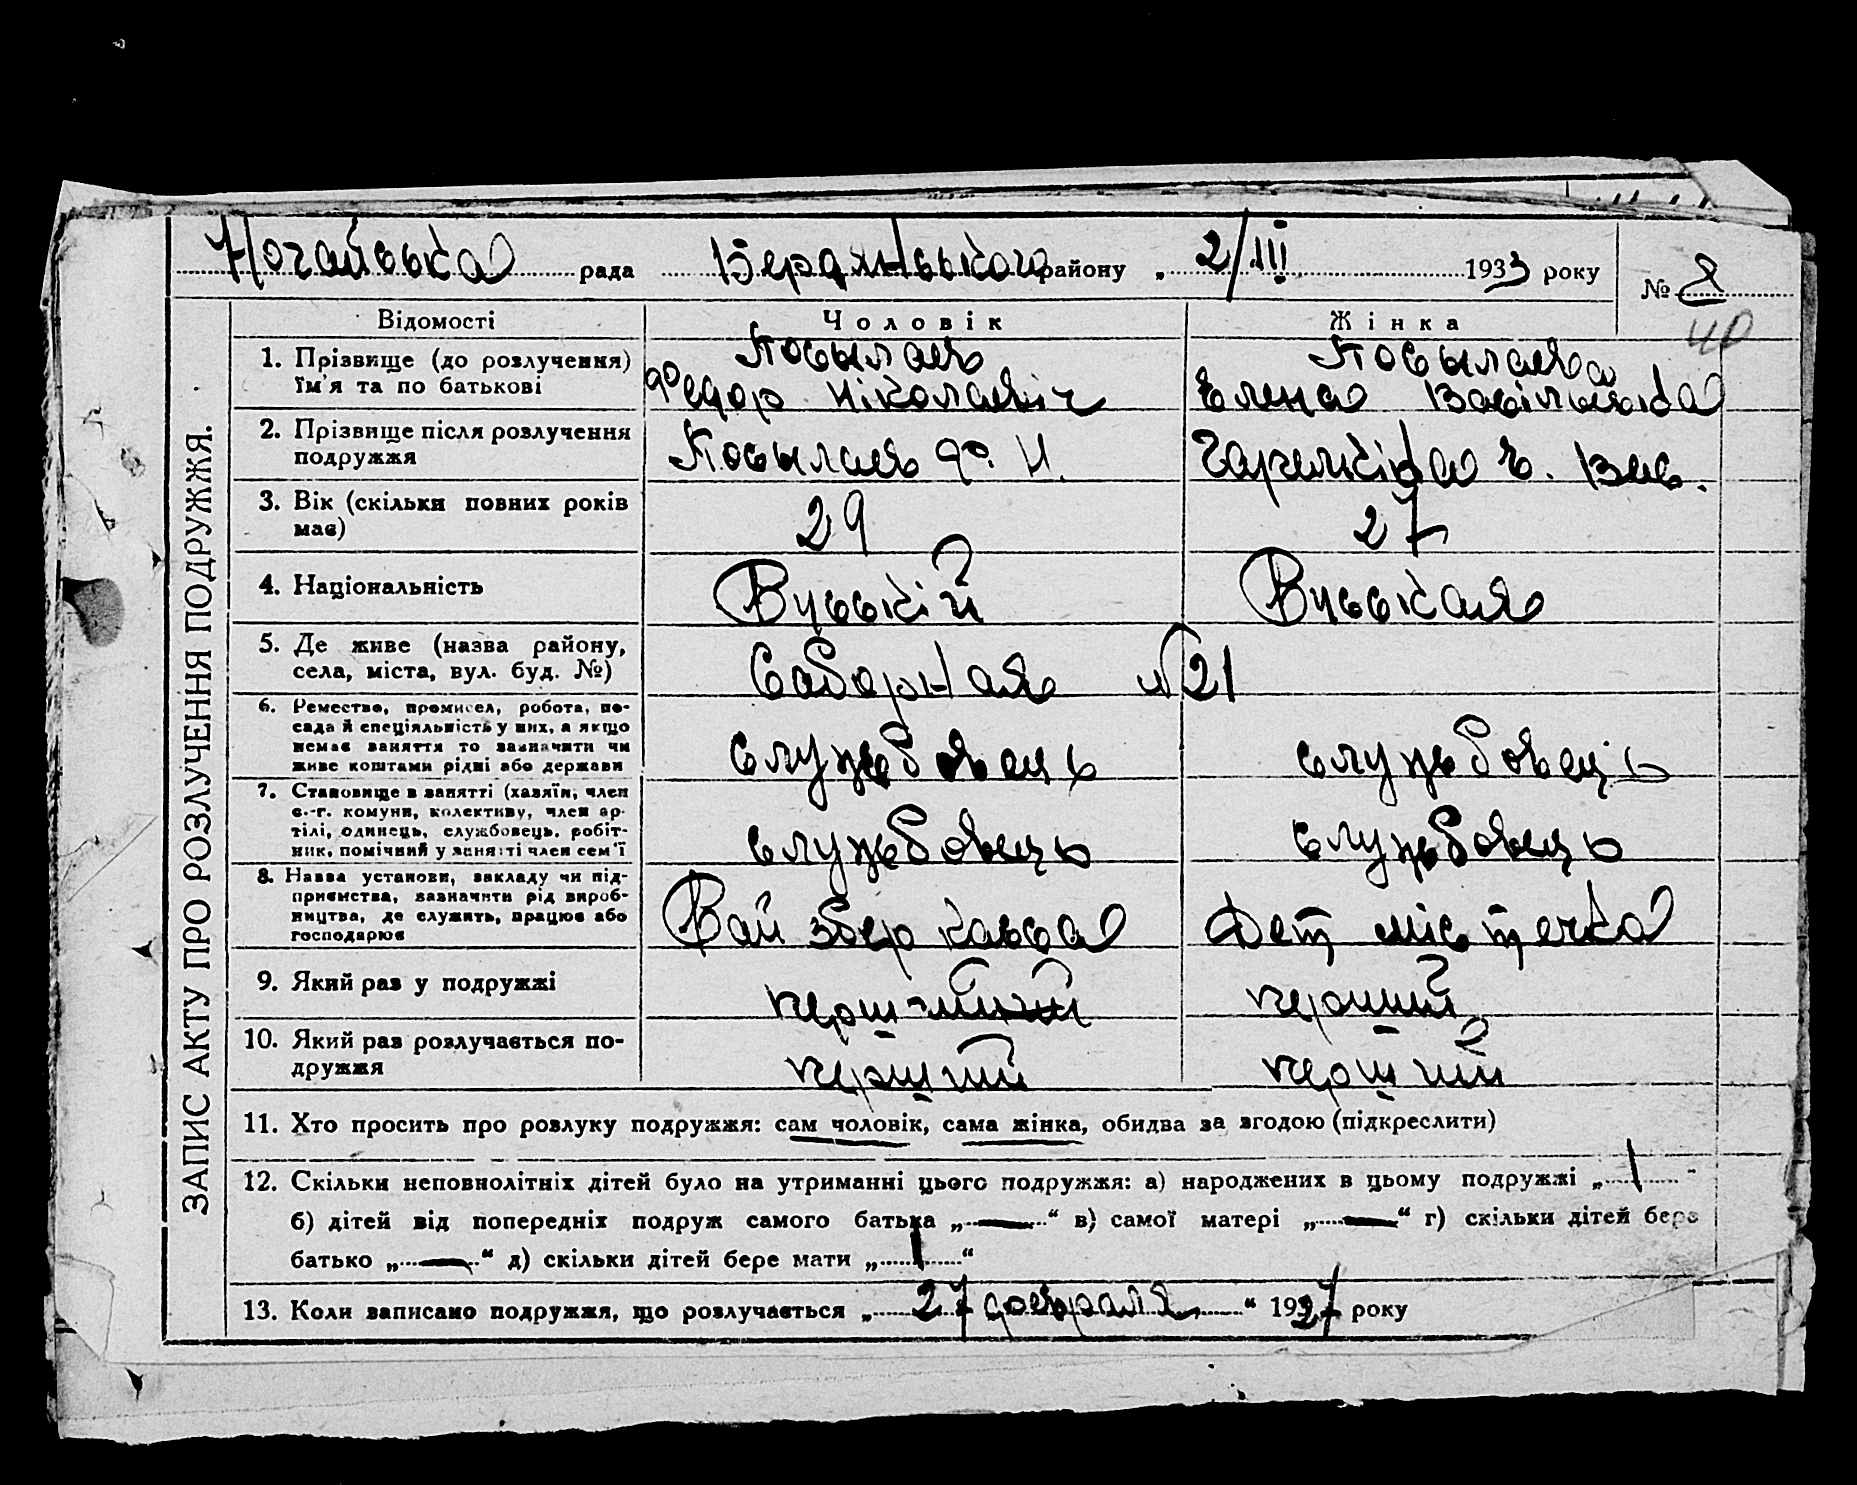 ЗАПИС АКТУ ПРО РОЗЛУЧЕННЯ ПОДРУЖЖЯ.
Ногайська рада Бердянського району „ 2/III 1933 року
№ 8
40
Відомості Чоловік Жінка
1. Прізвище (до розлучення) їм'я та по батькові
Федор Ніколаевіч
Елена
2. Прізвище після розлучення подружжя
Ф. Н.
Е. Вас.
3. Вік (скільки повних років має) 29 27
4. Національність Руський Руськая
5. Де живе (назва району, села, міста, вул. буд. №) Саборная № 21
6. Ремество, промисел, робота, посада й спеціяльність у них, а якщо немає заняття то зазначити чи живе коштами рідні або держави
службовець службовець
7. Становище в занятті (хазяїн, член с.-г. комуни, колективу, член артілі, одинець, службовець, робітник, помічний у занятті член сем'ї
службовець службовець
8. Назва установи, закладу чи підприємства, зазначити рід виробництва, де служить, працює або господарює
Рай збер касса Дет містечка
9. Який раз у подружжі перший перший
10. Який раз розлучається подружжя перший перший
11. Хто просить про розлуку подружжя: сам чоловік, сама жінка, обидва за згодою (підкреслити)
12. Скільки неповнолітніх дітей було на утриманні цього подружжя: а) народжених в цьому подружжі „ 1 "
б) дітей від попередніх подруж самого батька „ — " в) самої матері „ — " г) скільки дітей бере
батько „ — " д) скільки дітей бере мати „ 1 "
13. Коли записано подружжя, що розлучається „ 27 февраля " 1927 року